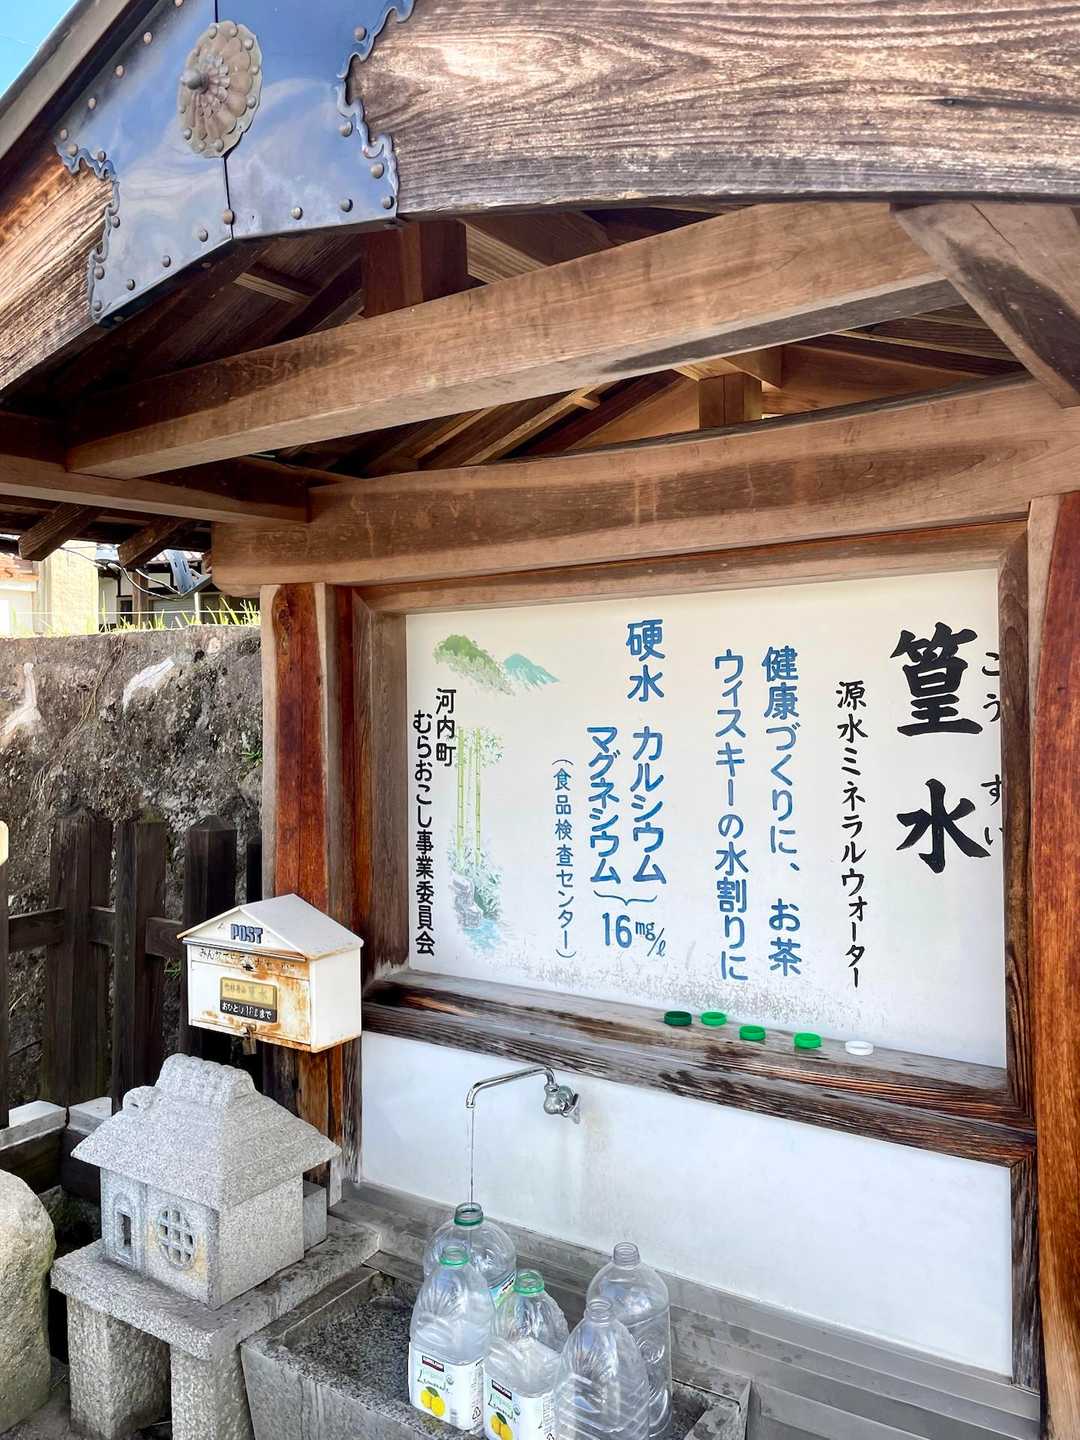 篁水
こうすい
源水ミネラルウォーター
健康づくりに、お茶
ウィスキーの水割りに
硬水 カルシウム
マグネシウム
16mg/ℓ
(食品検査センター)
河内町
むらおこし事業委員会
POST
おひとり10ℓまで
KIRKLAND
Organic
Lemonade
KIRKLAND
Organic
Lemonade